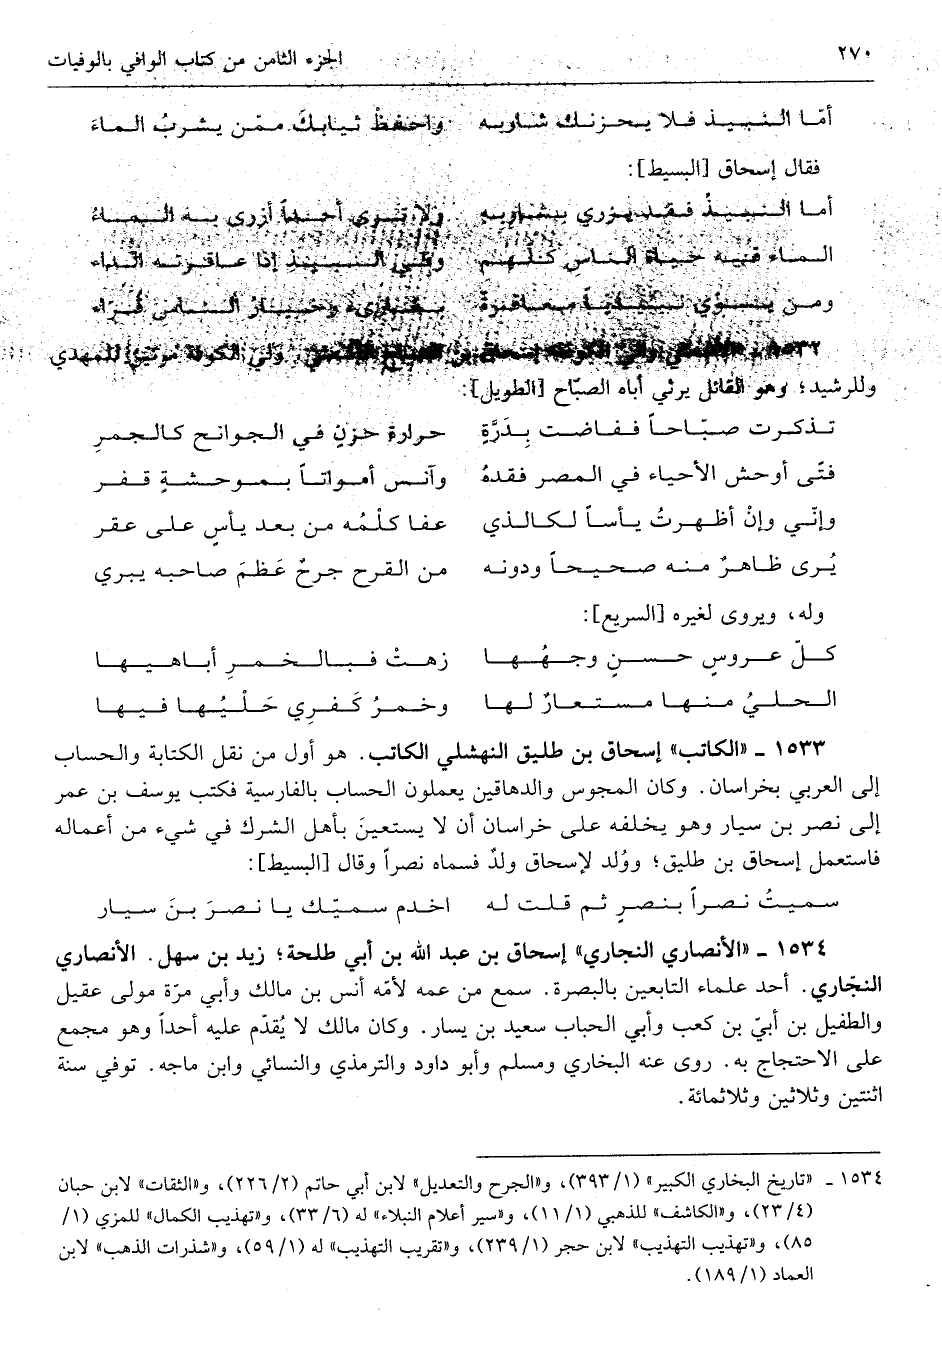 ٢٧٠ الجزء الثامن من كتاب الوافي بالوفيات
أمّا النبيذ فلا يحزنك شاربه واحفظْ ثيابكَ ممّن يشربُ الماءَ
فقال إسحاق [البسيط]:
أما النبيذُ فقد يزري بشاربه ولا تــرى أحــداً أزرى به الماءُ
الماء فيه حياة الناس كلهم وفي النبيذ إذا عاقرته الداء
ومن يسوّي نبيذياً معاقرةً بقارىء وخيار الناس قُراء
١٥٣٢ ـ إسحاق بن الصباح ولي الكوفة مرتين للمهدي
وللرشيد؛ وهو القائل يرثي أباه الصبّاح [الطويل]:
تذكرت صبّاحاً ففاضت بِدَرَّةٍ حرارة حزنٍ في الجوانح كالجمرِ
فتًى أوحش الأحياء في المصر فقدهُ وآنس أمواتاً بموحشةٍ قفر
وإنّي وإنْ أظهرتُ يأساً لكالذي عفا كلْمُه من بعد يأسٍ على عقر
يُرى ظاهرٌ منه صحيحاً ودونه من القرح جرحٌ عَظمَ صاحبه يبري
وله، ويروى لغيره [السريع]:
كلّ عروسٍ حسنٍ وجهُها زهتْ فبالخمرِ أباهيها
الحليُ منها مستعارٌ لها وخمرُ كَفري حَلْيُها فيها
١٥٣٣ ـ «الكاتب» إسحاق بن طليق النهشلي الكاتب. هو أول من نقل الكتابة والحساب
إلى العربي بخراسان. وكان المجوس والدهاقين يعملون الحساب بالفارسية فكتب يوسف بن عمر
إلى نصر بن سيار وهو يخلفه على خراسان أن لا يستعينَ بأهل الشرك في شيء من أعماله
فاستعمل إسحاق بن طليق؛ ووُلد لإسحاق ولدٌ فسماه نصراً وقال [البسيط]:
سميتُ نصراً بنصرٍ ثم قلت له اخدم سميّك يا نصرَ بنَ سيار
١٥٣٤ ـ «الأنصاري النجاري» إسحاق بن عبد الله بن أبي طلحة؛ زيد بن سهل. الأنصاري
النجّاري. أحد علماء التابعين بالبصرة. سمع من عمه لأمّه أنس بن مالك وأبي مرّة مولى عقيل
والطفيل بن أبيّ بن كعب وأبي الحباب سعيد بن يسار. وكان مالك لا يُقدّم عليه أحداً وهو مجمع
على الاحتجاج به. روى عنه البخاري ومسلم وأبو داود والترمذي والنسائي وابن ماجه. توفي سنة
اثنتين وثلاثين وثلاثمائة.
١٥٣٤ ـ «تاريخ البخاري الكبير» (١/ ٣٩٣)، و«الجرح والتعديل» لابن أبي حاتم (٢/ ٢٢٦)، و«الثقات» لابن حبان
(٤/ ٢٣)، و«الكاشف» للذهبي (١/ ١١)، و«سير أعلام النبلاء» له (٦/ ٣٣)، و«تهذيب الكمال» للمزي (١/
٨٥)، و«تهذيب التهذيب» لابن حجر (١/ ٢٣٩)، و«تقريب التهذيب» له (١/ ٥٩)، و«شذرات الذهب» لابن
العماد (١/ ١٨٩).